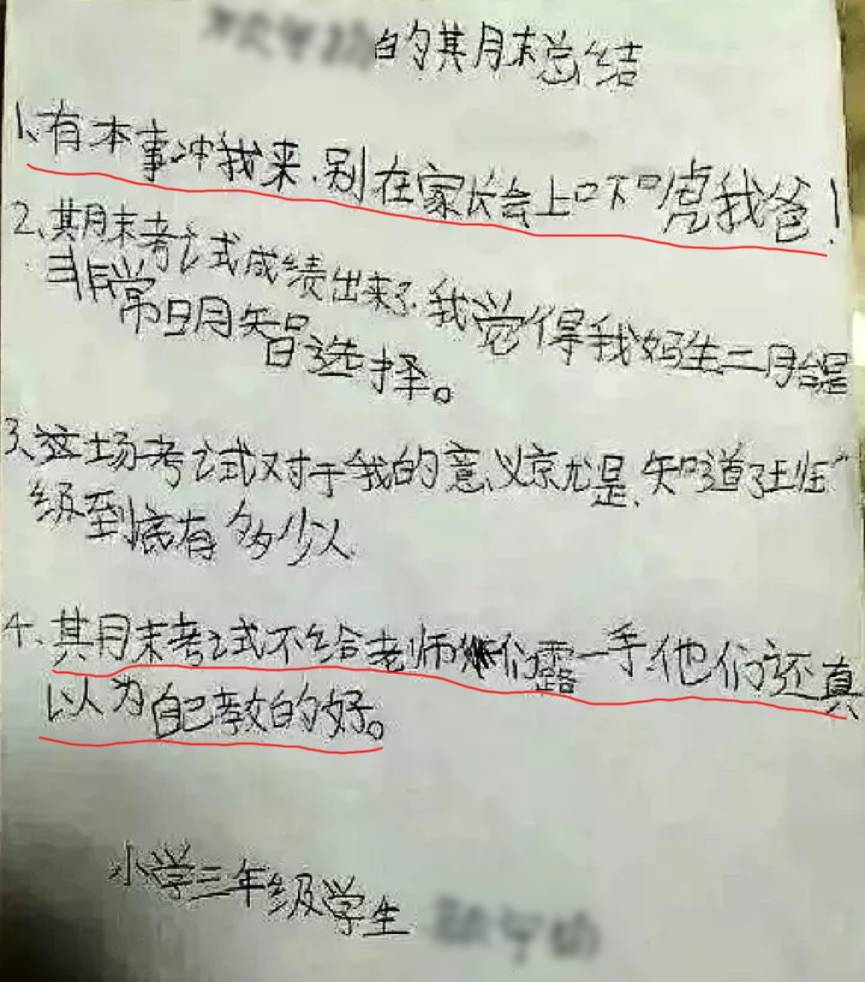 的期末总结
1、有本事冲我来,别在家长会上吓唬我爸!
2、期末考试成绩出来了,我觉得我妈生二胎是
非常明智选择。
3、这场考试对于我的意义就是,知道了班
级到底有多少人
4、期末考试不给老师们露一手他们还真
以为自己教的好。
小学三年级学生